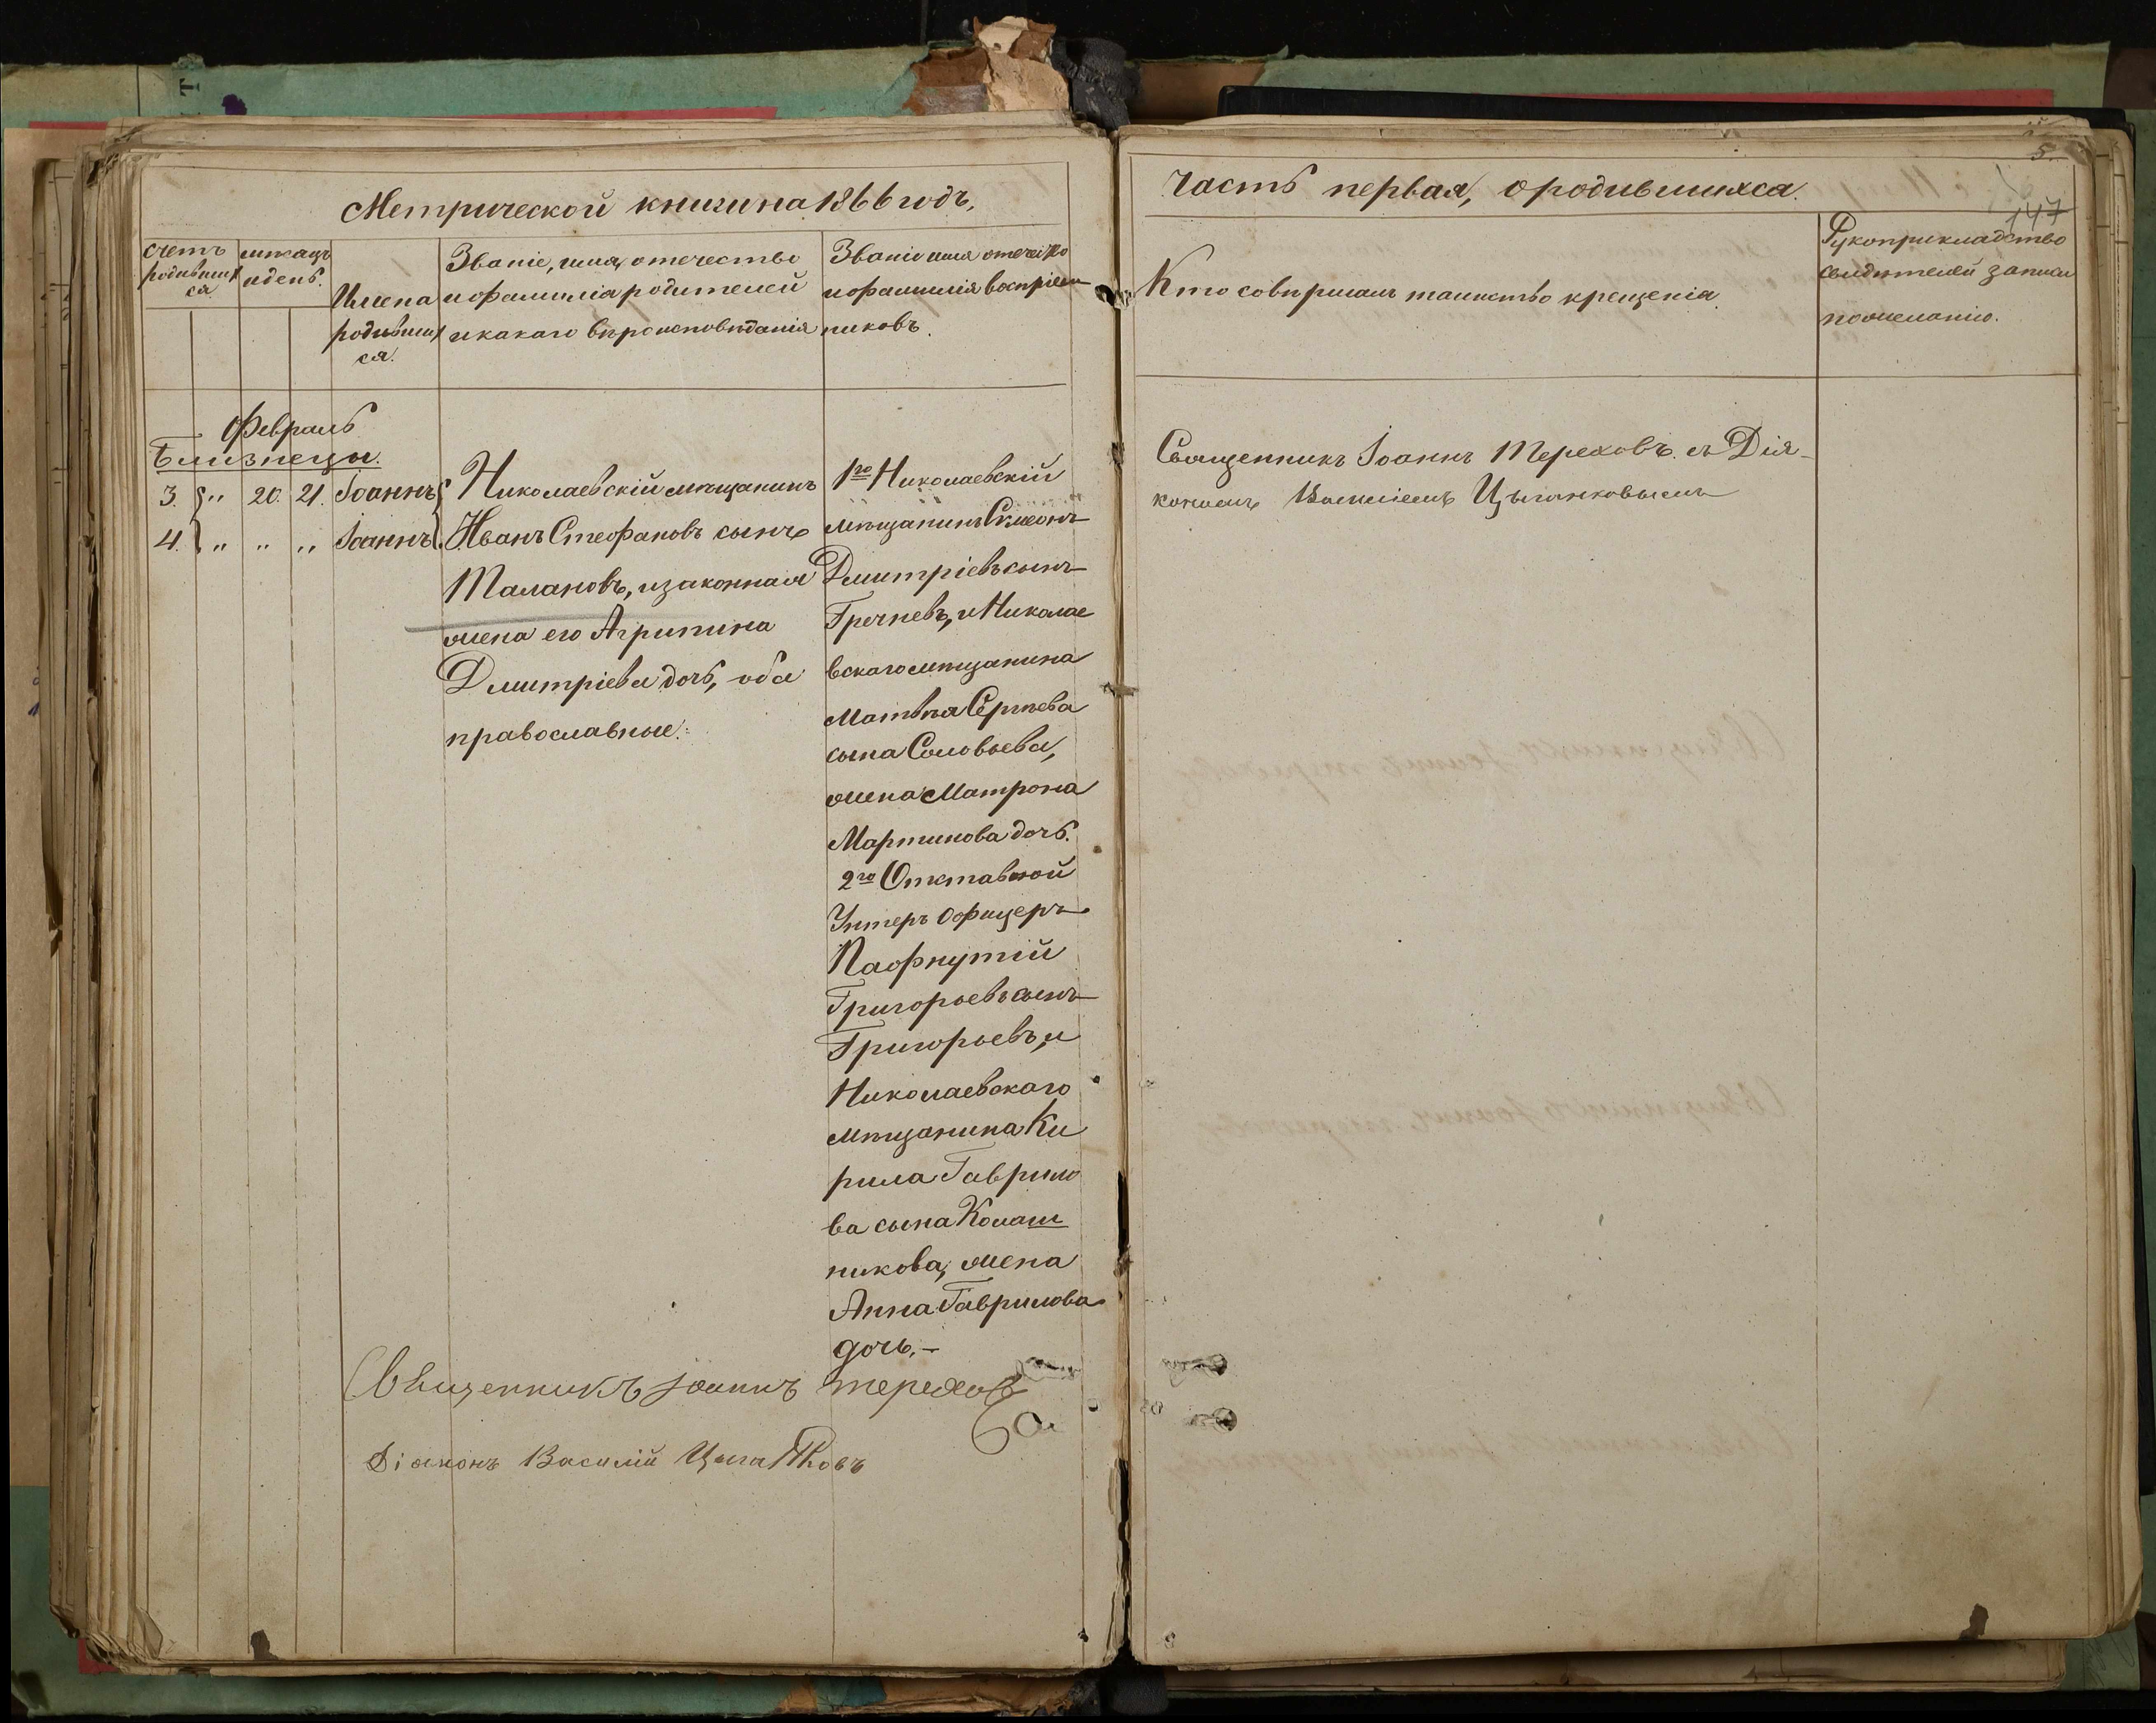 Метрической книги на 1866 годъ,
Счетъ родивших ся
мѣсяцъ и день.
Имена родивших ся.
Званіе, имя, отчество
и фамилія родителей
и какаго вѣроисповѣданія
Званіе имя отечество
и фамилія воспріем
никовъ.
Февраль
Близнецы.
3. „ 20. 21. Іоаннъ
4. „ „ „ Іоаннъ
Николаевскій мѣщанинъ
Иванъ Стефановъ сынъ
Талановъ, и законная
жена его Агрипина
Дмитріева дочь, оба
православные.
1го Николаевскій
мѣщанинъ Симеонъ
Дмитріевъ сынъ
Гречневъ, и Николае
вскаго мѣщанина
Матвѣя Сергѣева
сына Соловьева,
жена Матрона
Мартинова дочь.
2го Отставной
Унтеръ Офицеръ
Пафнутій
Григорьевъ сынъ
Григорьевъ, и
Николаевскаго
мѣщанина Ки
рила Гаврило
ва сына Колаш
никова, жена
Анна Гаврилова
дочь.–
Священникъ Іоаннъ Тереховъ
Діаконъ Василій Цыганковъ
5.
147
часть первая, о родившихся.
Кто совершалъ таинство крещенія
Рукоприкладство
свидѣтелей записи
по желанію.
Священникъ Іоаннъ Тереховъ съ Дія-
кономъ Василіемъ Цыганковымъ